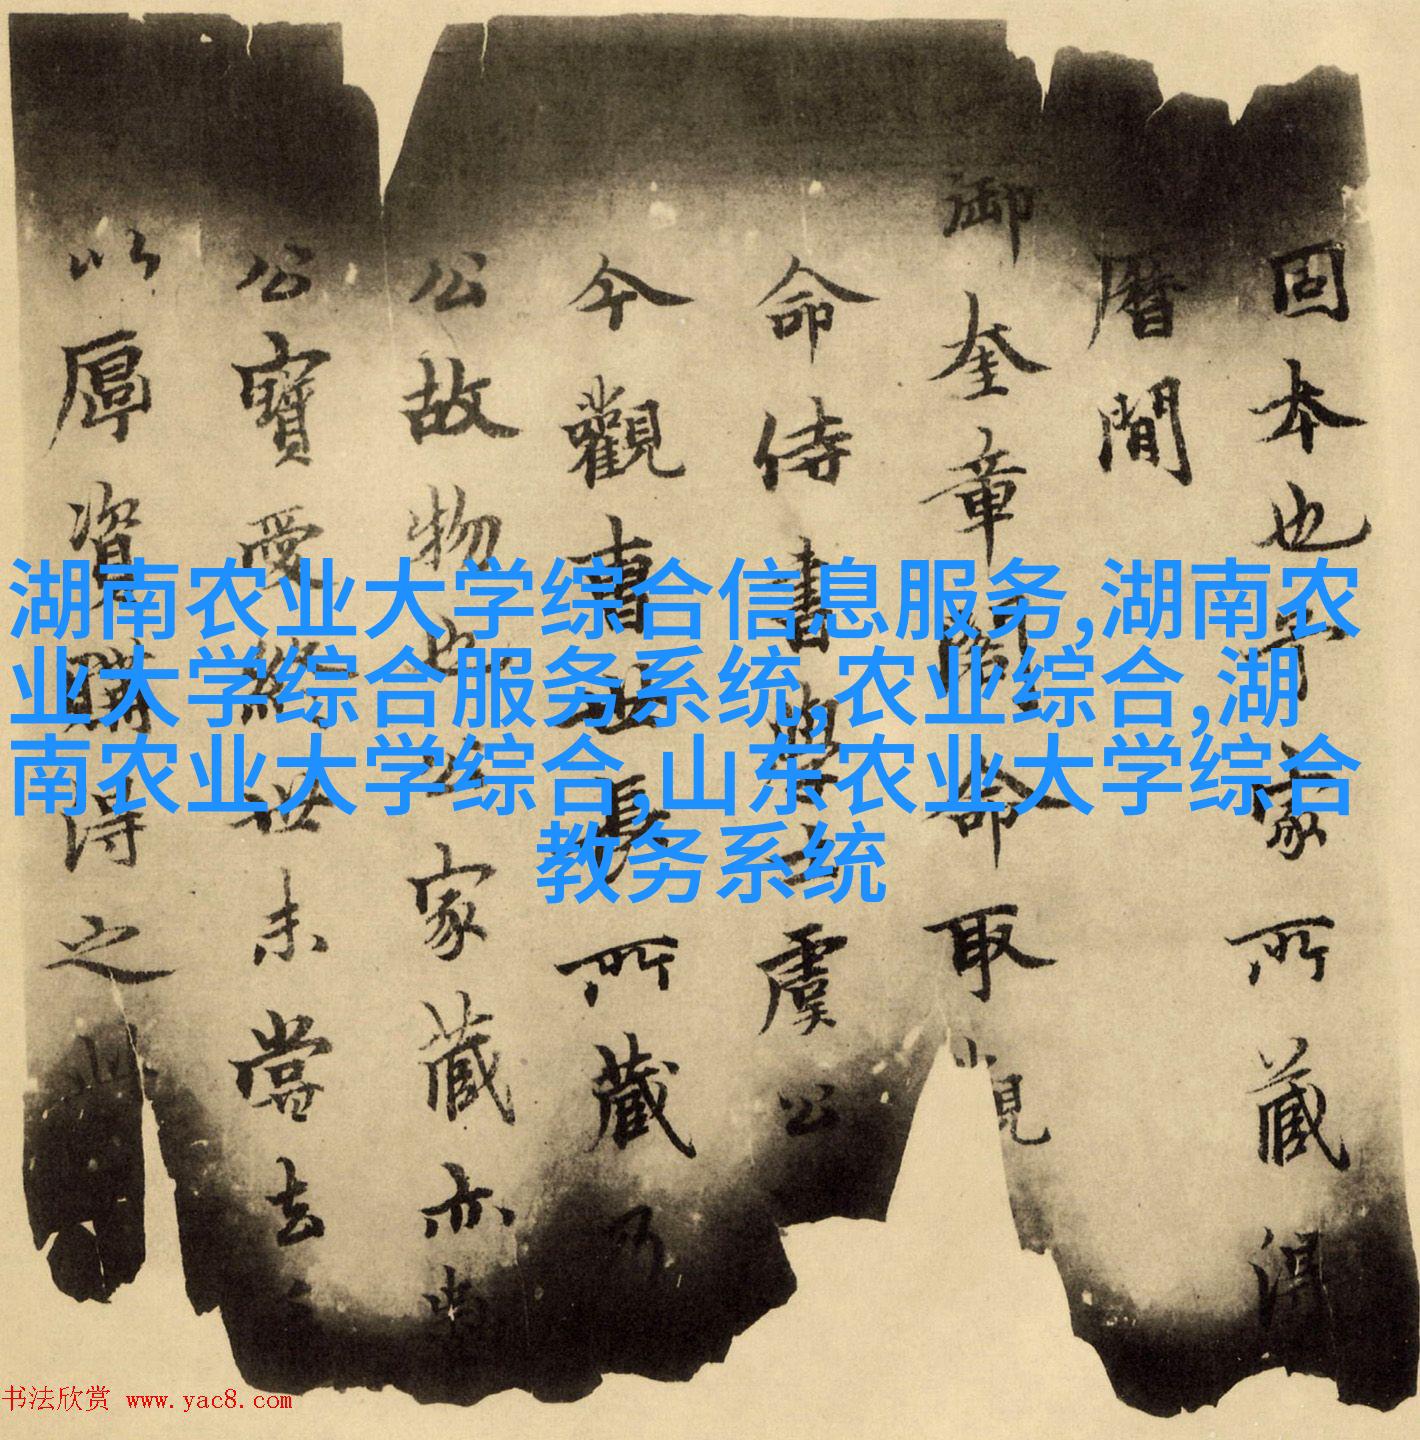 固本也予家所藏得
曆間
御奎章閣命取觀
命侍書學士虞公
今觀書此長所藏乃
公故物也公家藏亦
公寶愛終世未嘗去
以厚資購得之
湖南农业大学综合信息服务,湖南农
业大学综合服务系统,农业综合,湖
南农业大学综合,山东农业大学综合
教务系统
书法欣赏 www.yac8.com